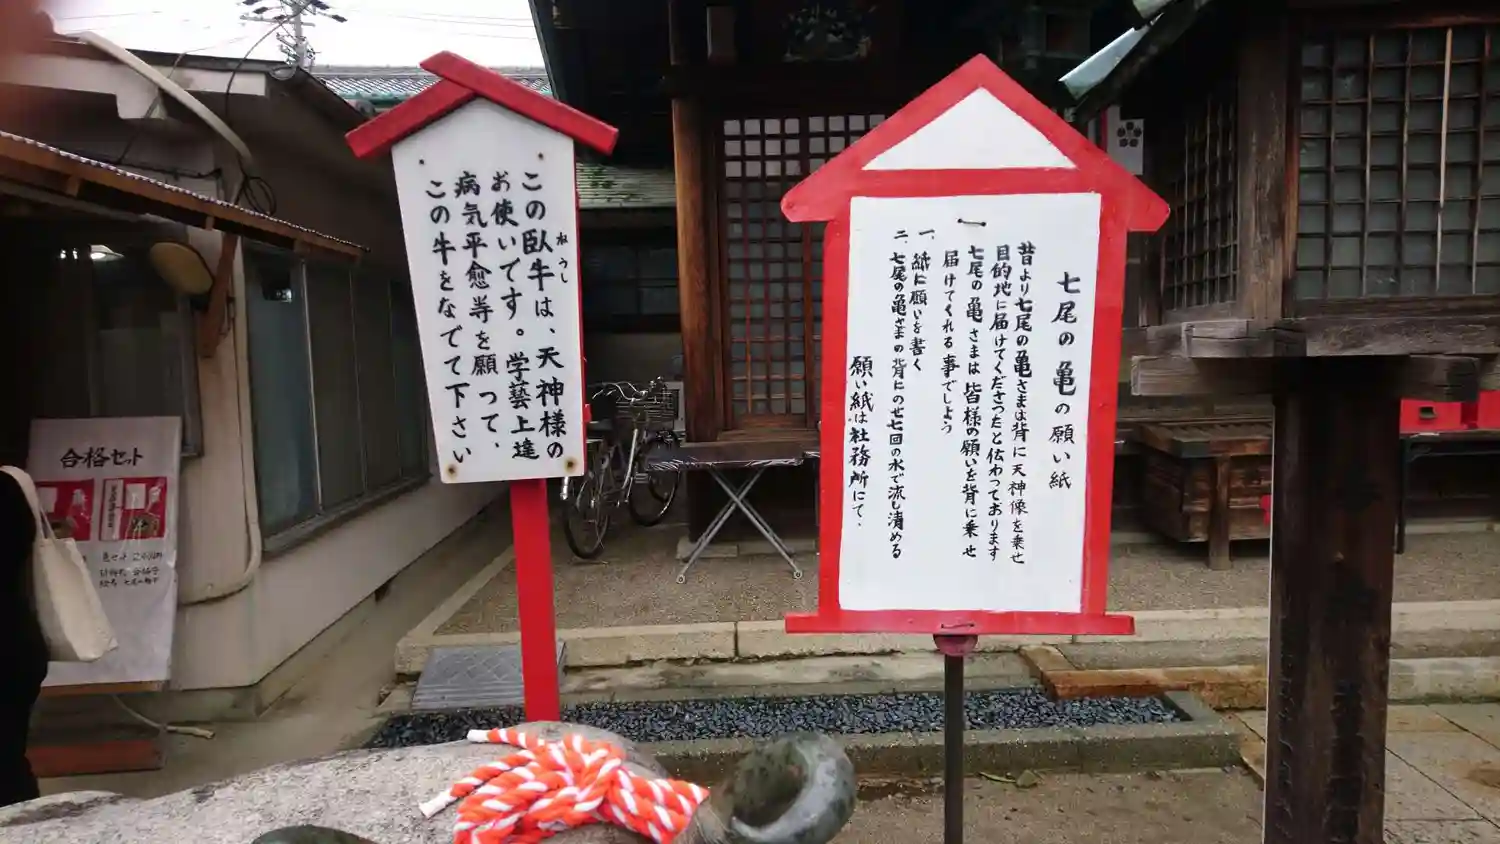 この臥牛は、天神様の
ねうし
お使いです。学藝上達
病気平愈等を願って、
この牛をなでて下さい
七尾の亀の願い紙
昔より七尾の亀さまは背に天神像を乗せ
目的地に届けてくださったと伝わっております
七尾の亀さまは皆様の願いを背に乗せ
届けてくれる事でしよう
一、紙に願いを書く
二、七尾の亀さまの背にのせ七回の水で流し清める
願い紙は社務所にて.
合格セット